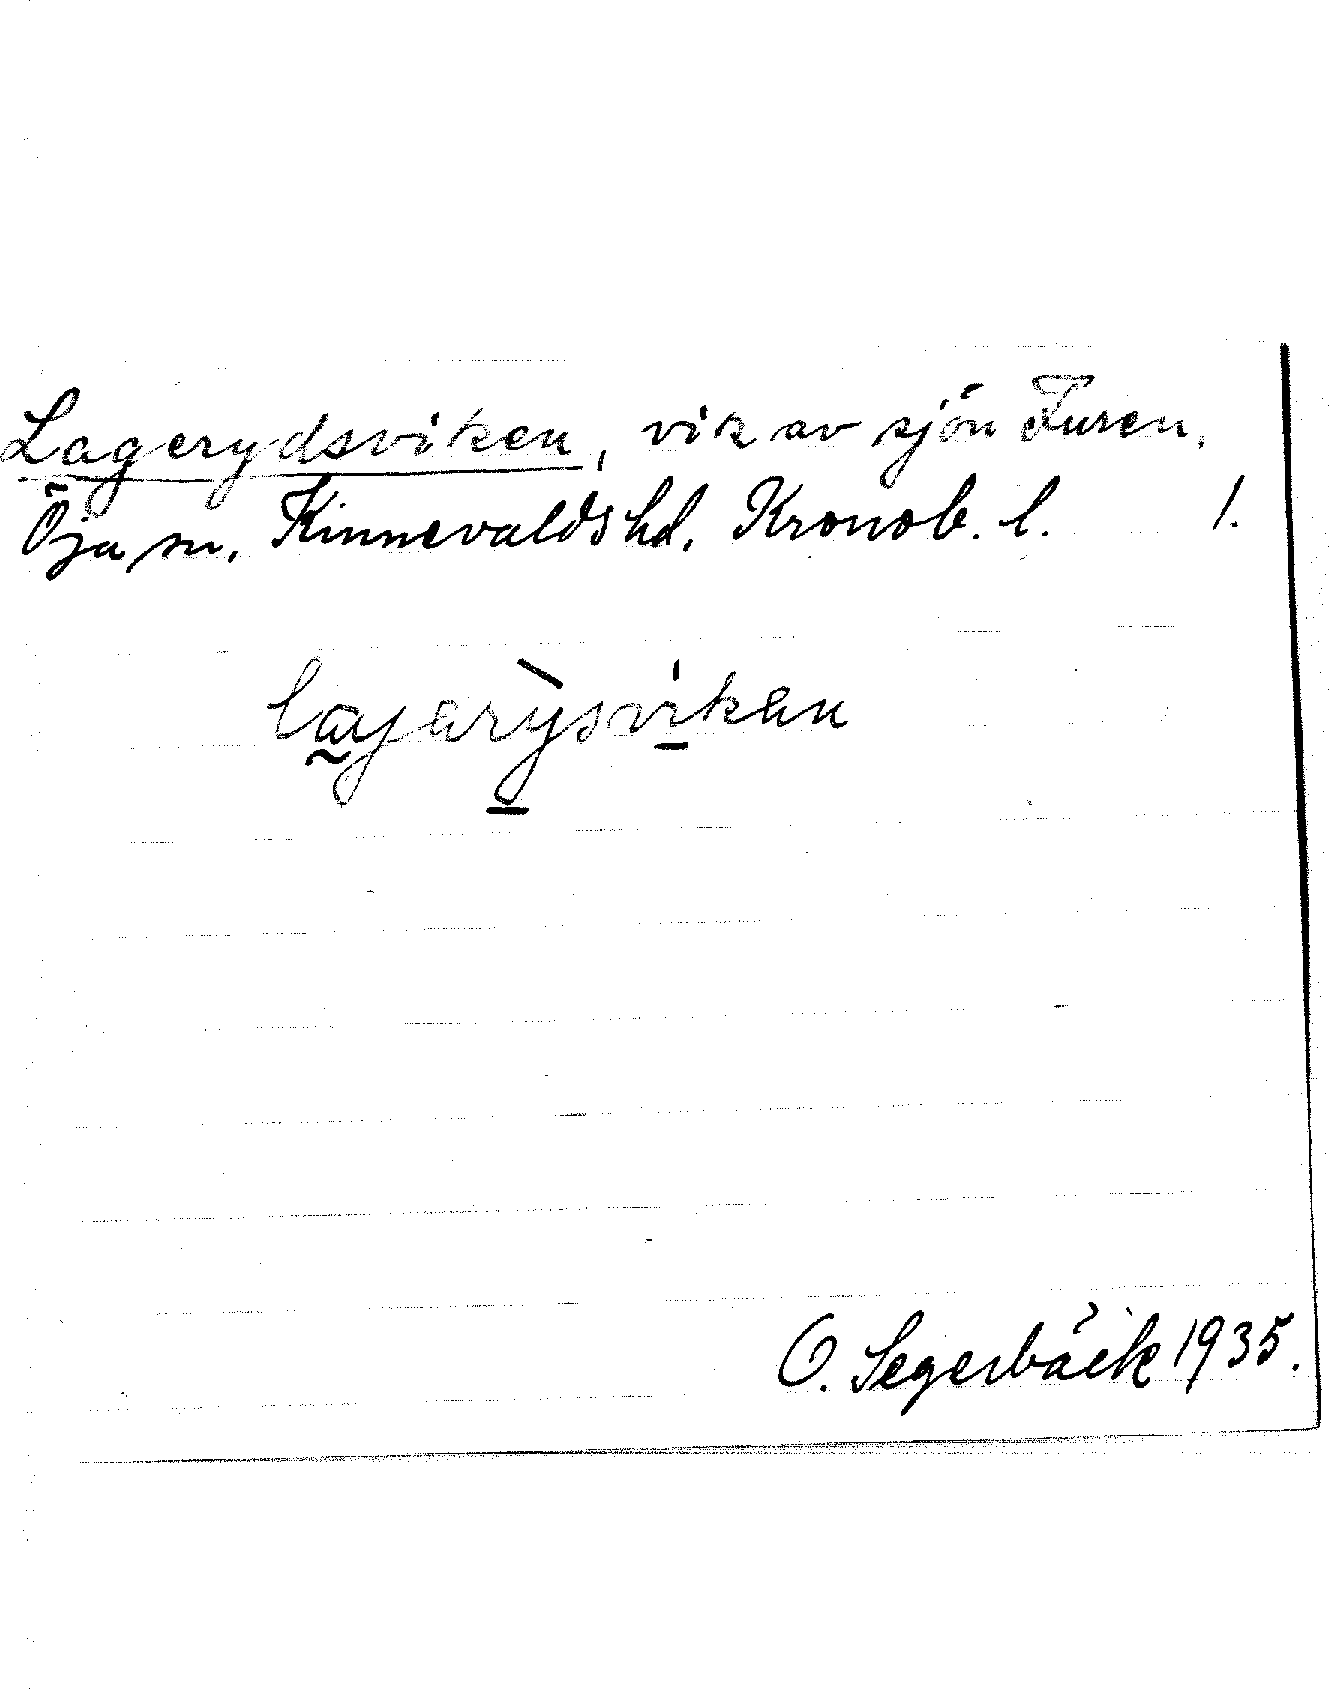 Lagerydsviken, vik av sjön Furen,
Öja sn, Kinnevalds hd, Kronob. l. 1.
lajarỳsvikan
O. Segerbäck 1935.